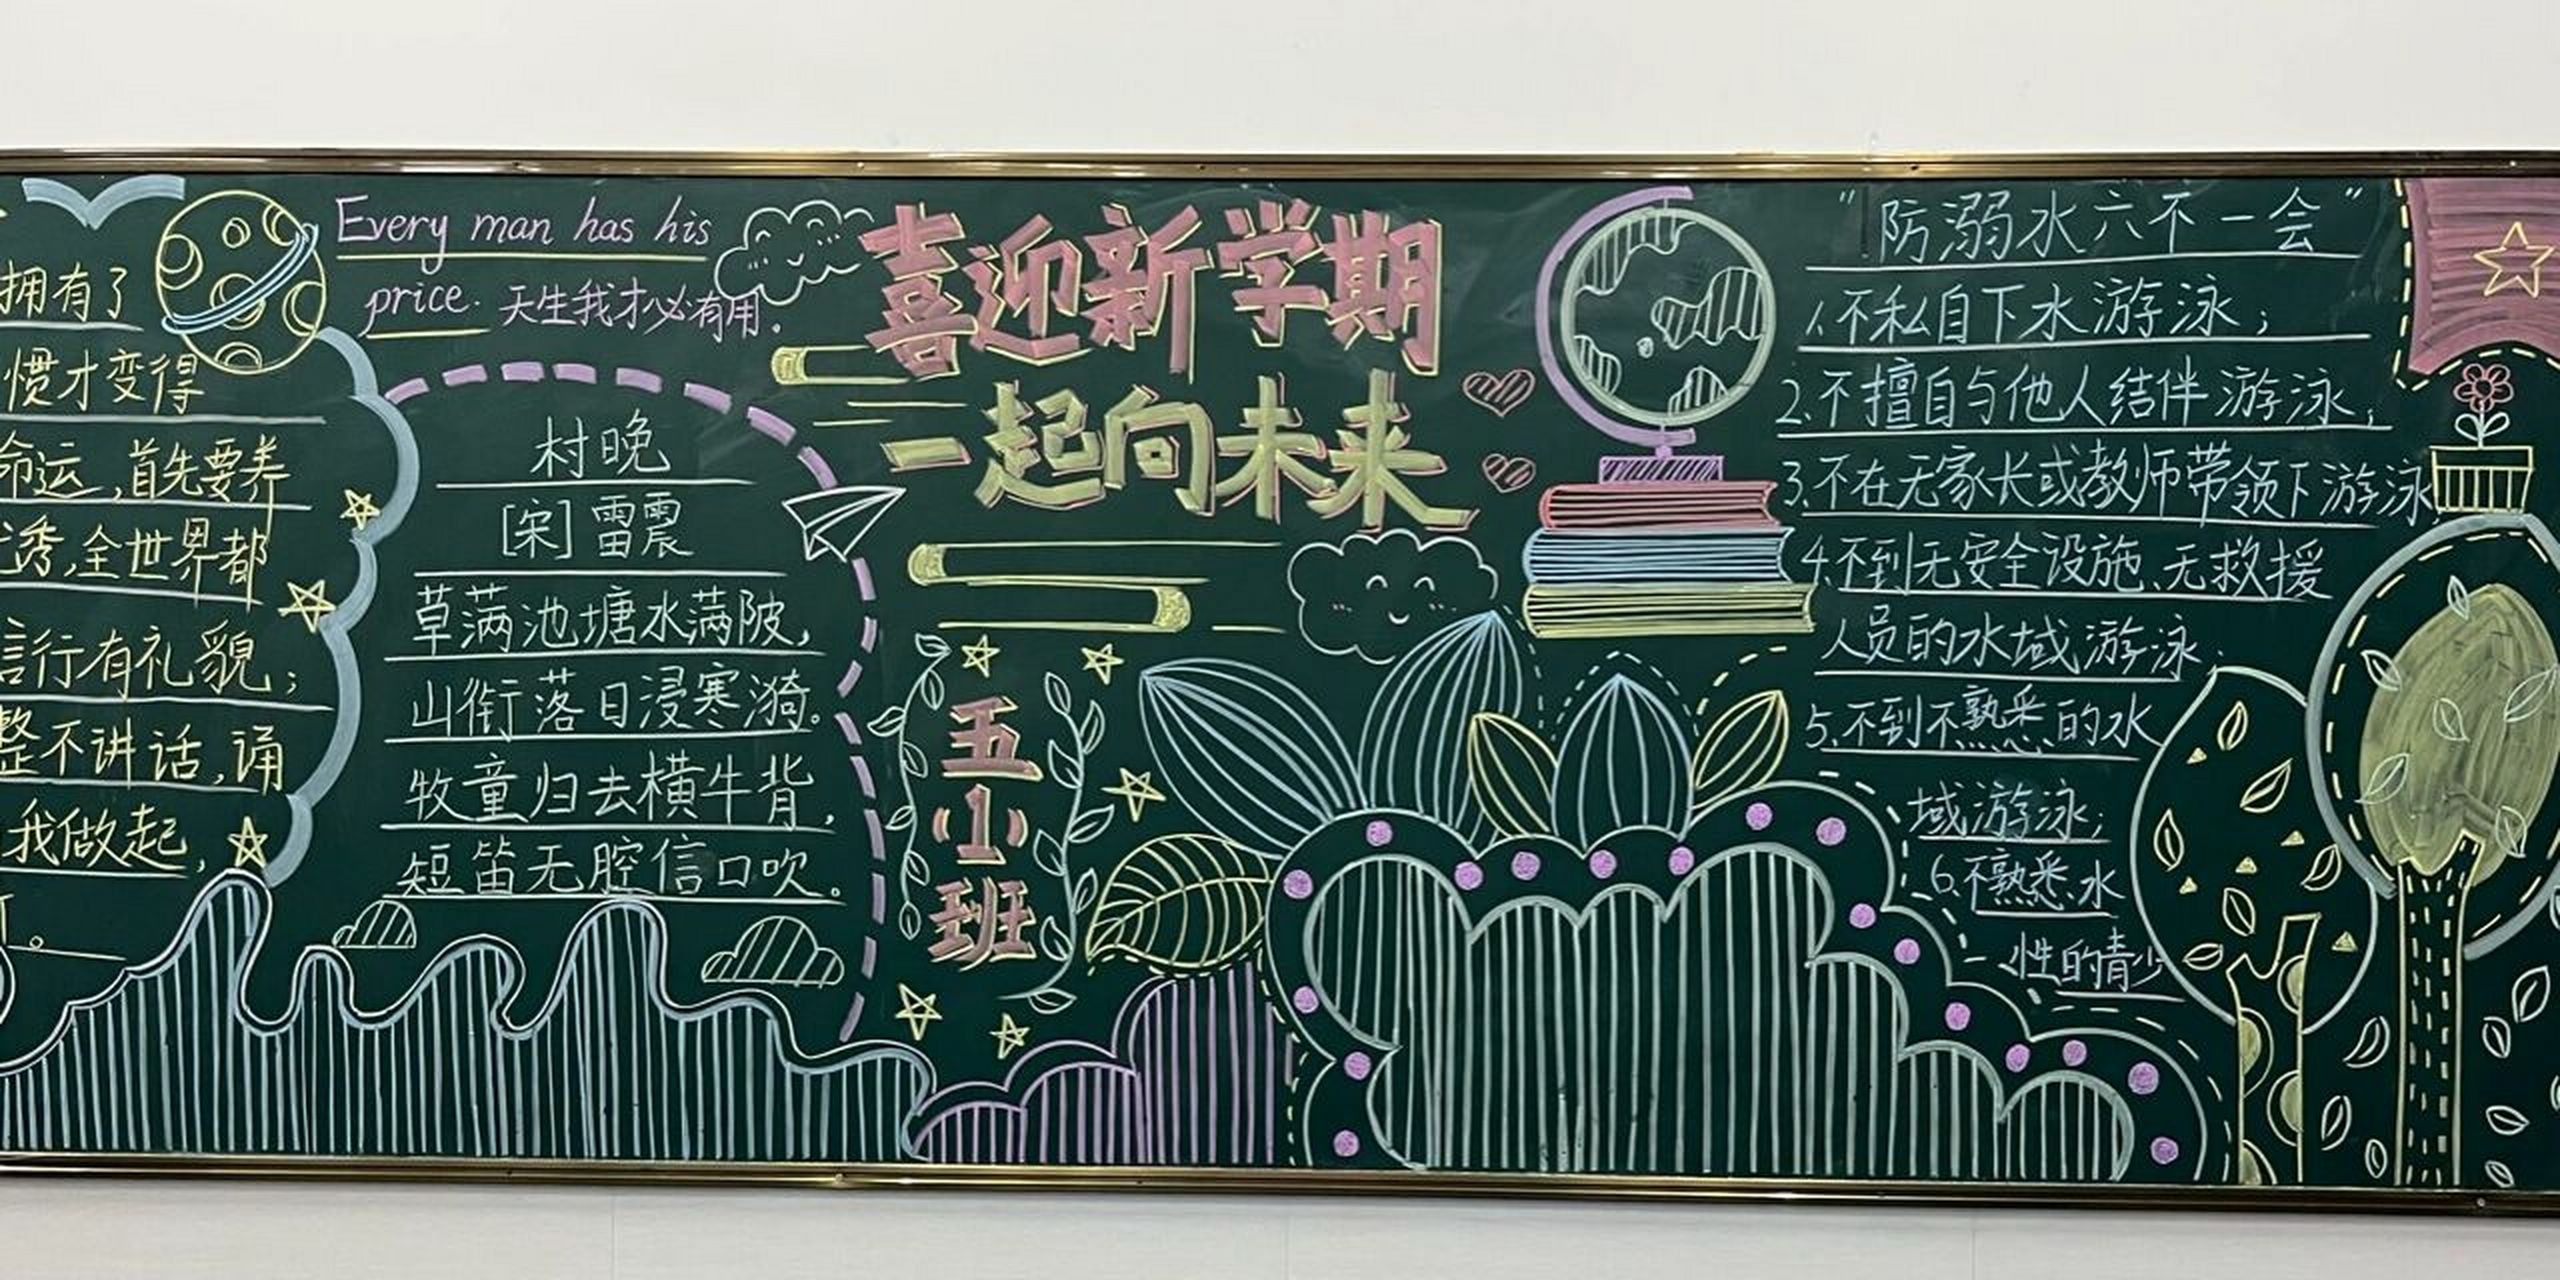 拥有了
惯才变得
命运,首先要养
透,全世界都
言行有礼貌;
整不讲话,诵
我做起,
Every man has his
price. 天生我才必有用。
村晚
[宋] 雷震
草满池塘水满陂,
山衔落日浸寒漪。
牧童归去横牛背,
短笛无腔信口吹。
喜迎新学期
一起向未来
五
(1)
班
"防溺水六不一会"
1.不私自下水游泳;
2.不擅自与他人结伴游泳;
3.不在无家长或教师带领下游泳;
4.不到无安全设施、无救援
人员的水域游泳;
5.不到不熟悉的水
域游泳;
6.不熟悉水
性的青少